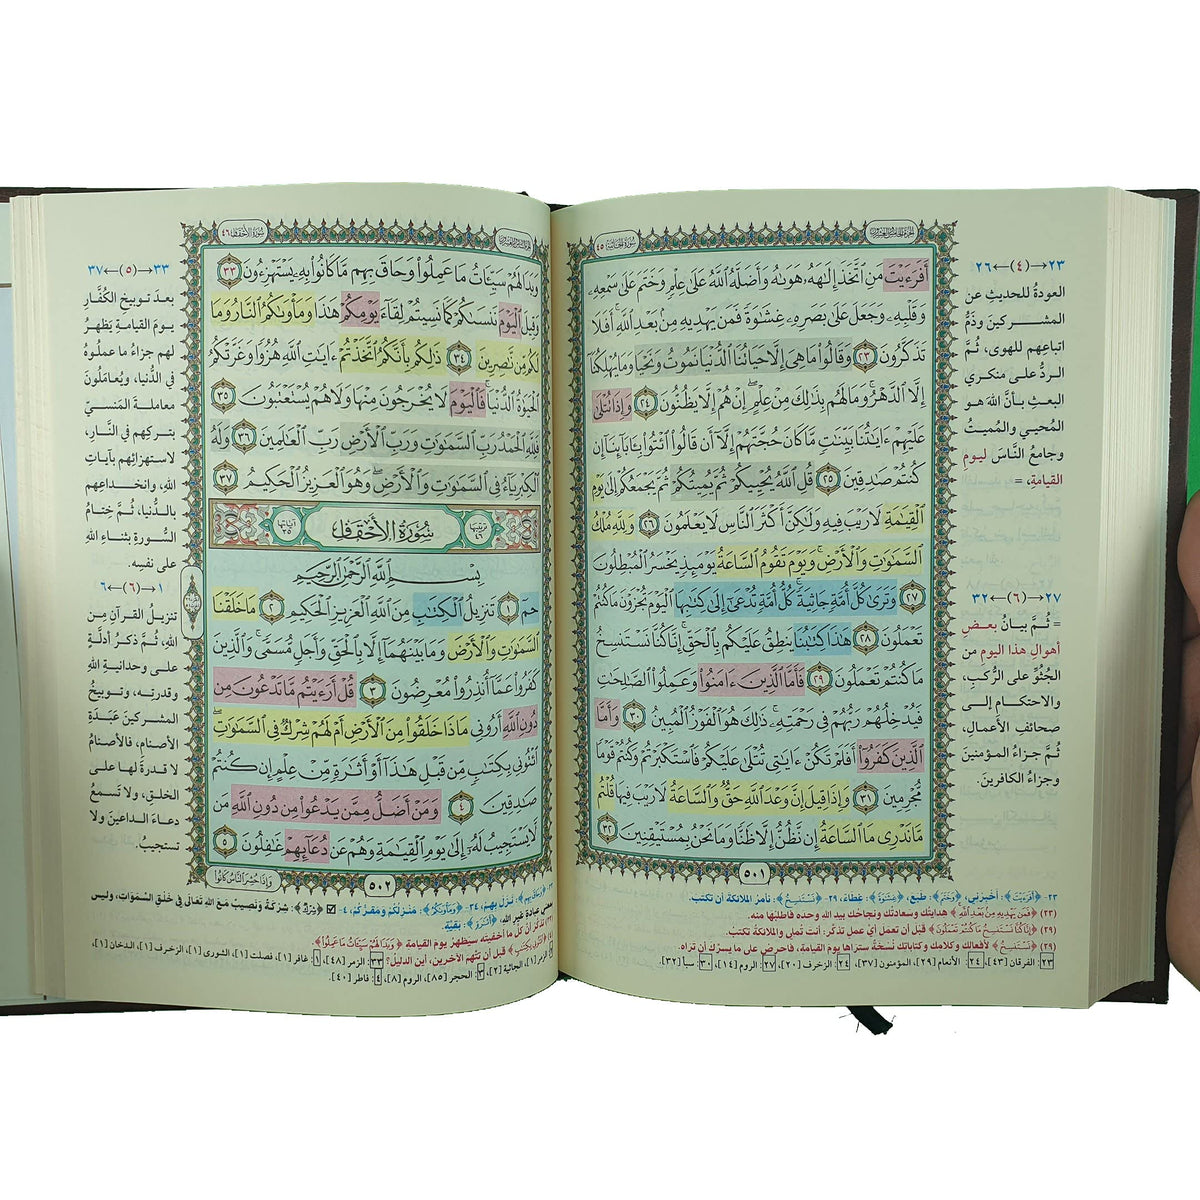 الجزء الخامس والعشرون
سورة الجاثية ٤٥
أَفَرَءَيْتَ مَنِ ٱتَّخَذَ إِلَٰهَهُۥ هَوَىٰهُ وَأَضَلَّهُ ٱللَّهُ عَلَىٰ عِلْمٍ وَخَتَمَ عَلَىٰ سَمْعِهِۦ
وَقَلْبِهِۦ وَجَعَلَ عَلَىٰ بَصَرِهِۦ غِشَٰوَةً فَمَن يَهْدِيهِ مِنۢ بَعْدِ ٱللَّهِ أَفَلَا
تَذَكَّرُونَ ٢٣ وَقَالُوا۟ مَا هِىَ إِلَّا حَيَاتُنَا ٱلدُّنْيَا نَمُوتُ وَنَحْيَا وَمَا يُهْلِكُنَآ
إِلَّا ٱلدَّهْرُ وَمَا لَهُم بِذَٰلِكَ مِنْ عِلْمٍ إِنْ هُمْ إِلَّا يَظُنُّونَ ٢٤ وَإِذَا تُتْلَىٰ
عَلَيْهِمْ ءَايَٰتُنَا بَيِّنَٰتٍ مَّا كَانَ حُجَّتَهُمْ إِلَّآ أَن قَالُوا۟ ٱئْتُوا۟ بِـَٔابَآئِنَآ إِن
كُنتُمْ صَٰدِقِينَ ٢٥ قُلِ ٱللَّهُ يُحْيِيكُمْ ثُمَّ يُمِيتُكُمْ ثُمَّ يَجْمَعُكُمْ إِلَىٰ يَوْمِ
ٱلْقِيَٰمَةِ لَا رَيْبَ فِيهِ وَلَٰكِنَّ أَكْثَرَ ٱلنَّاسِ لَا يَعْلَمُونَ ٢٦ وَلِلَّهِ مُلْكُ
ٱلسَّمَٰوَٰتِ وَٱلْأَرْضِ وَيَوْمَ تَقُومُ ٱلسَّاعَةُ يَوْمَئِذٍ يَخْسَرُ ٱلْمُبْطِلُونَ
٢٧ وَتَرَىٰ كُلَّ أُمَّةٍ جَاثِيَةً كُلُّ أُمَّةٍ تُدْعَىٰٓ إِلَىٰ كِتَٰبِهَا ٱلْيَوْمَ تُجْزَوْنَ مَا كُنتُمْ
تَعْمَلُونَ ٢٨ هَٰذَا كِتَٰبُنَا يَنطِقُ عَلَيْكُم بِٱلْحَقِّ إِنَّا كُنَّا نَسْتَنسِخُ
مَا كُنتُمْ تَعْمَلُونَ ٢٩ فَأَمَّا ٱلَّذِينَ ءَامَنُوا۟ وَعَمِلُوا۟ ٱلصَّٰلِحَٰتِ
فَيُدْخِلُهُمْ رَبُّهُمْ فِى رَحْمَتِهِۦ ذَٰلِكَ هُوَ ٱلْفَوْزُ ٱلْمُبِينُ ٣٠ وَأَمَّا
ٱلَّذِينَ كَفَرُوٓا۟ أَفَلَمْ تَكُنْ ءَايَٰتِى تُتْلَىٰ عَلَيْكُمْ فَٱسْتَكْبَرْتُمْ وَكُنتُمْ قَوْمًا
مُّجْرِمِينَ ٣١ وَإِذَا قِيلَ إِنَّ وَعْدَ ٱللَّهِ حَقٌّ وَٱلسَّاعَةُ لَا رَيْبَ فِيهَا قُلْتُم
مَّا نَدْرِى مَا ٱلسَّاعَةُ إِن نَّظُنُّ إِلَّا ظَنًّا وَمَا نَحْنُ بِمُسْتَيْقِنِينَ ٣٢
٥٠١
٢٣→(٤)←٢٦
العودةُ للحديثِ عن
المشركينَ وذَمُّ
اتباعِهم للهوى، ثُمَّ
الردُّ على منكري
البعثِ بـأنَّ اللهَ هو
المُحيي والمُميتُ
وجامعُ النَّاسَ ليومِ
القيامةِ، =
٢٧→(٦)←٣٢
= ثُمَّ بيانُ بعضِ
أهوالِ هذا اليومِ من
الجُثُوِّ على الرُّكبِ،
والاحتكامِ إلى
صحائفِ الأعمالِ،
ثُمَّ جزاءُ المؤمنينَ
وجزاءُ الكافرينَ.
٢٣- ﴿أَفَرَءَيْتَ﴾: أخبرني، ﴿وَخَتَمَ﴾: طبع، ﴿غِشَٰوَةً﴾: غطاءً، ٢٩- ﴿نَسْتَنسِخُ﴾: نأمر الملائكة أن تكتب.
(٢٣) ﴿فَمَن يَهْدِيهِ مِنۢ بَعْدِ ٱللَّهِ﴾ هدايتك وسعادتك ونجاحك بيد الله وحده فاطلبها منه.
(٢٩) ﴿إِنَّا كُنَّا نَسْتَنسِخُ مَا كُنتُمْ تَعْمَلُونَ﴾ قبل أن تعمل أي عمل تذكر: أنت تُملي والملائكة تكتب.
(٢٩) ﴿نَسْتَنسِخُ﴾ لأفعالك وكلامك وكتاباتك نسخة ستراها يوم القيامة، فاحرص على ما يسرك أن تراه.
٢٣: الفرقان [٤٣]، ٢٤: الأنعام [٢٩]، المؤمنون [٣٧]، ٢٤: الزخرف [٢٠]، ٢٧: الروم [١٤]، ٣٠: سبأ [٣٢].
الجزء السادس والعشرون
سورة الأحقاف ٤٦
وَبَدَا لَهُمْ سَيِّـَٔاتُ مَا عَمِلُوا۟ وَحَاقَ بِهِم مَّا كَانُوا۟ بِهِۦ يَسْتَهْزِءُونَ ٣٣
وَقِيلَ ٱلْيَوْمَ نَنسَىٰكُمْ كَمَا نَسِيتُمْ لِقَآءَ يَوْمِكُمْ هَٰذَا وَمَأْوَىٰكُمُ ٱلنَّارُ وَمَا
لَكُم مِّن نَّٰصِرِينَ ٣٤ ذَٰلِكُم بِأَنَّكُمُ ٱتَّخَذْتُمْ ءَايَٰتِ ٱللَّهِ هُزُوًا وَغَرَّتْكُمُ
ٱلْحَيَوٰةُ ٱلدُّنْيَا فَٱلْيَوْمَ لَا يُخْرَجُونَ مِنْهَا وَلَا هُمْ يُسْتَعْتَبُونَ ٣٥
فَلِلَّهِ ٱلْحَمْدُ رَبِّ ٱلسَّمَٰوَٰتِ وَرَبِّ ٱلْأَرْضِ رَبِّ ٱلْعَٰلَمِينَ ٣٦ وَلَهُ
ٱلْكِبْرِيَآءُ فِى ٱلسَّمَٰوَٰتِ وَٱلْأَرْضِ وَهُوَ ٱلْعَزِيزُ ٱلْحَكِيمُ ٣٧
ترتيبها ٤٦ سُورَةُ الأَحْقَافِ آياتها ٣٥
بِسْمِ ٱللَّهِ ٱلرَّحْمَٰنِ ٱلرَّحِيمِ
حمٓ ١ تَنزِيلُ ٱلْكِتَٰبِ مِنَ ٱللَّهِ ٱلْعَزِيزِ ٱلْحَكِيمِ ٢ مَا خَلَقْنَا
ٱلسَّمَٰوَٰتِ وَٱلْأَرْضَ وَمَا بَيْنَهُمَآ إِلَّا بِٱلْحَقِّ وَأَجَلٍ مُّسَمًّى وَٱلَّذِينَ
كَفَرُوا۟ عَمَّآ أُنذِرُوا۟ مُعْرِضُونَ ٣ قُلْ أَرَءَيْتُم مَّا تَدْعُونَ مِن
دُونِ ٱللَّهِ أَرُونِى مَاذَا خَلَقُوا۟ مِنَ ٱلْأَرْضِ أَمْ لَهُمْ شِرْكٌ فِى ٱلسَّمَٰوَٰتِ
ٱئْتُونِى بِكِتَٰبٍ مِّن قَبْلِ هَٰذَآ أَوْ أَثَٰرَةٍ مِّنْ عِلْمٍ إِن كُنتُمْ
صَٰدِقِينَ ٤ وَمَنْ أَضَلُّ مِمَّن يَدْعُوا۟ مِن دُونِ ٱللَّهِ مَن
لَّا يَسْتَجِيبُ لَهُۥٓ إِلَىٰ يَوْمِ ٱلْقِيَٰمَةِ وَهُمْ عَن دُعَآئِهِمْ غَٰفِلُونَ ٥
وَإِذَا حُشِرَ ٱلنَّاسُ كَانُوا۟
٥٠٢
٣٣→(٥)←٣٧
بعدَ توبيخِ الكُفَّارِ
يومَ القيامةِ يَظهرُ
لهم جزاءُ ما عملُوهُ
في الدُّنيا، ويُعاملُونَ
معاملـةَ المَنسـيِّ
بتركِهم في النَّارِ،
لاستهزائِهم بآياتِ
اللهِ، وانخـداعِهم
بالدُّنيا، ثُمَّ خِتامُ
السُّورةِ بثناءِ اللهِ
على نفسِه.
١→(٦)←٦
تنزيلُ القرآنِ مِن
اللهِ، ثُمَّ ذكرُ أدلةٍ
على وحدانيةِ اللهِ
وقدرتِه، وتوبيخُ
المشركينَ عَبَدَةِ
الأصنامِ، فالأصنامُ
لا قدرةَ لها على
الخلقِ، ولا تَسمعُ
دعاءَ الداعينَ ولا
تستجيبُ.
٣٣- ﴿وَحَاقَ بِهِم﴾: نَزَلَ بِهِم، ٣٤- ﴿وَمَأْوَىٰكُمُ﴾: مَنزِلُكُم ومَقَرُّكُم، ٤- ﴿شِرْكٌ﴾: شِرْكَةٌ ونصيبٌ مَعَ اللهِ تعالى في خَلْقِ السَّمواتِ، وليس
معنى عبادة غير الله، ﴿أَثَٰرَةٍ﴾: بَقِيَّةٍ.
(٣٣) ﴿وَبَدَا لَهُمْ سَيِّـَٔاتُ مَا عَمِلُوا۟﴾ تذكر أن كل ما أخفيته سيظهر يوم القيامة.
(٤) ﴿ٱئْتُونِى بِكِتَٰبٍ﴾ قبل أن تتهم الآخرين، أين الدليل؟
٣٣: الزمر [٤٨]، ١: غافر [١]، فصلت [١]، الشورى [١]، الزخرف [١]، الدخان [١]،
الزمر [١]، الجاثية [٢]، ٣: الحجر [٨٥]، الروم [٨]، ٤: فاطر [٤٠].